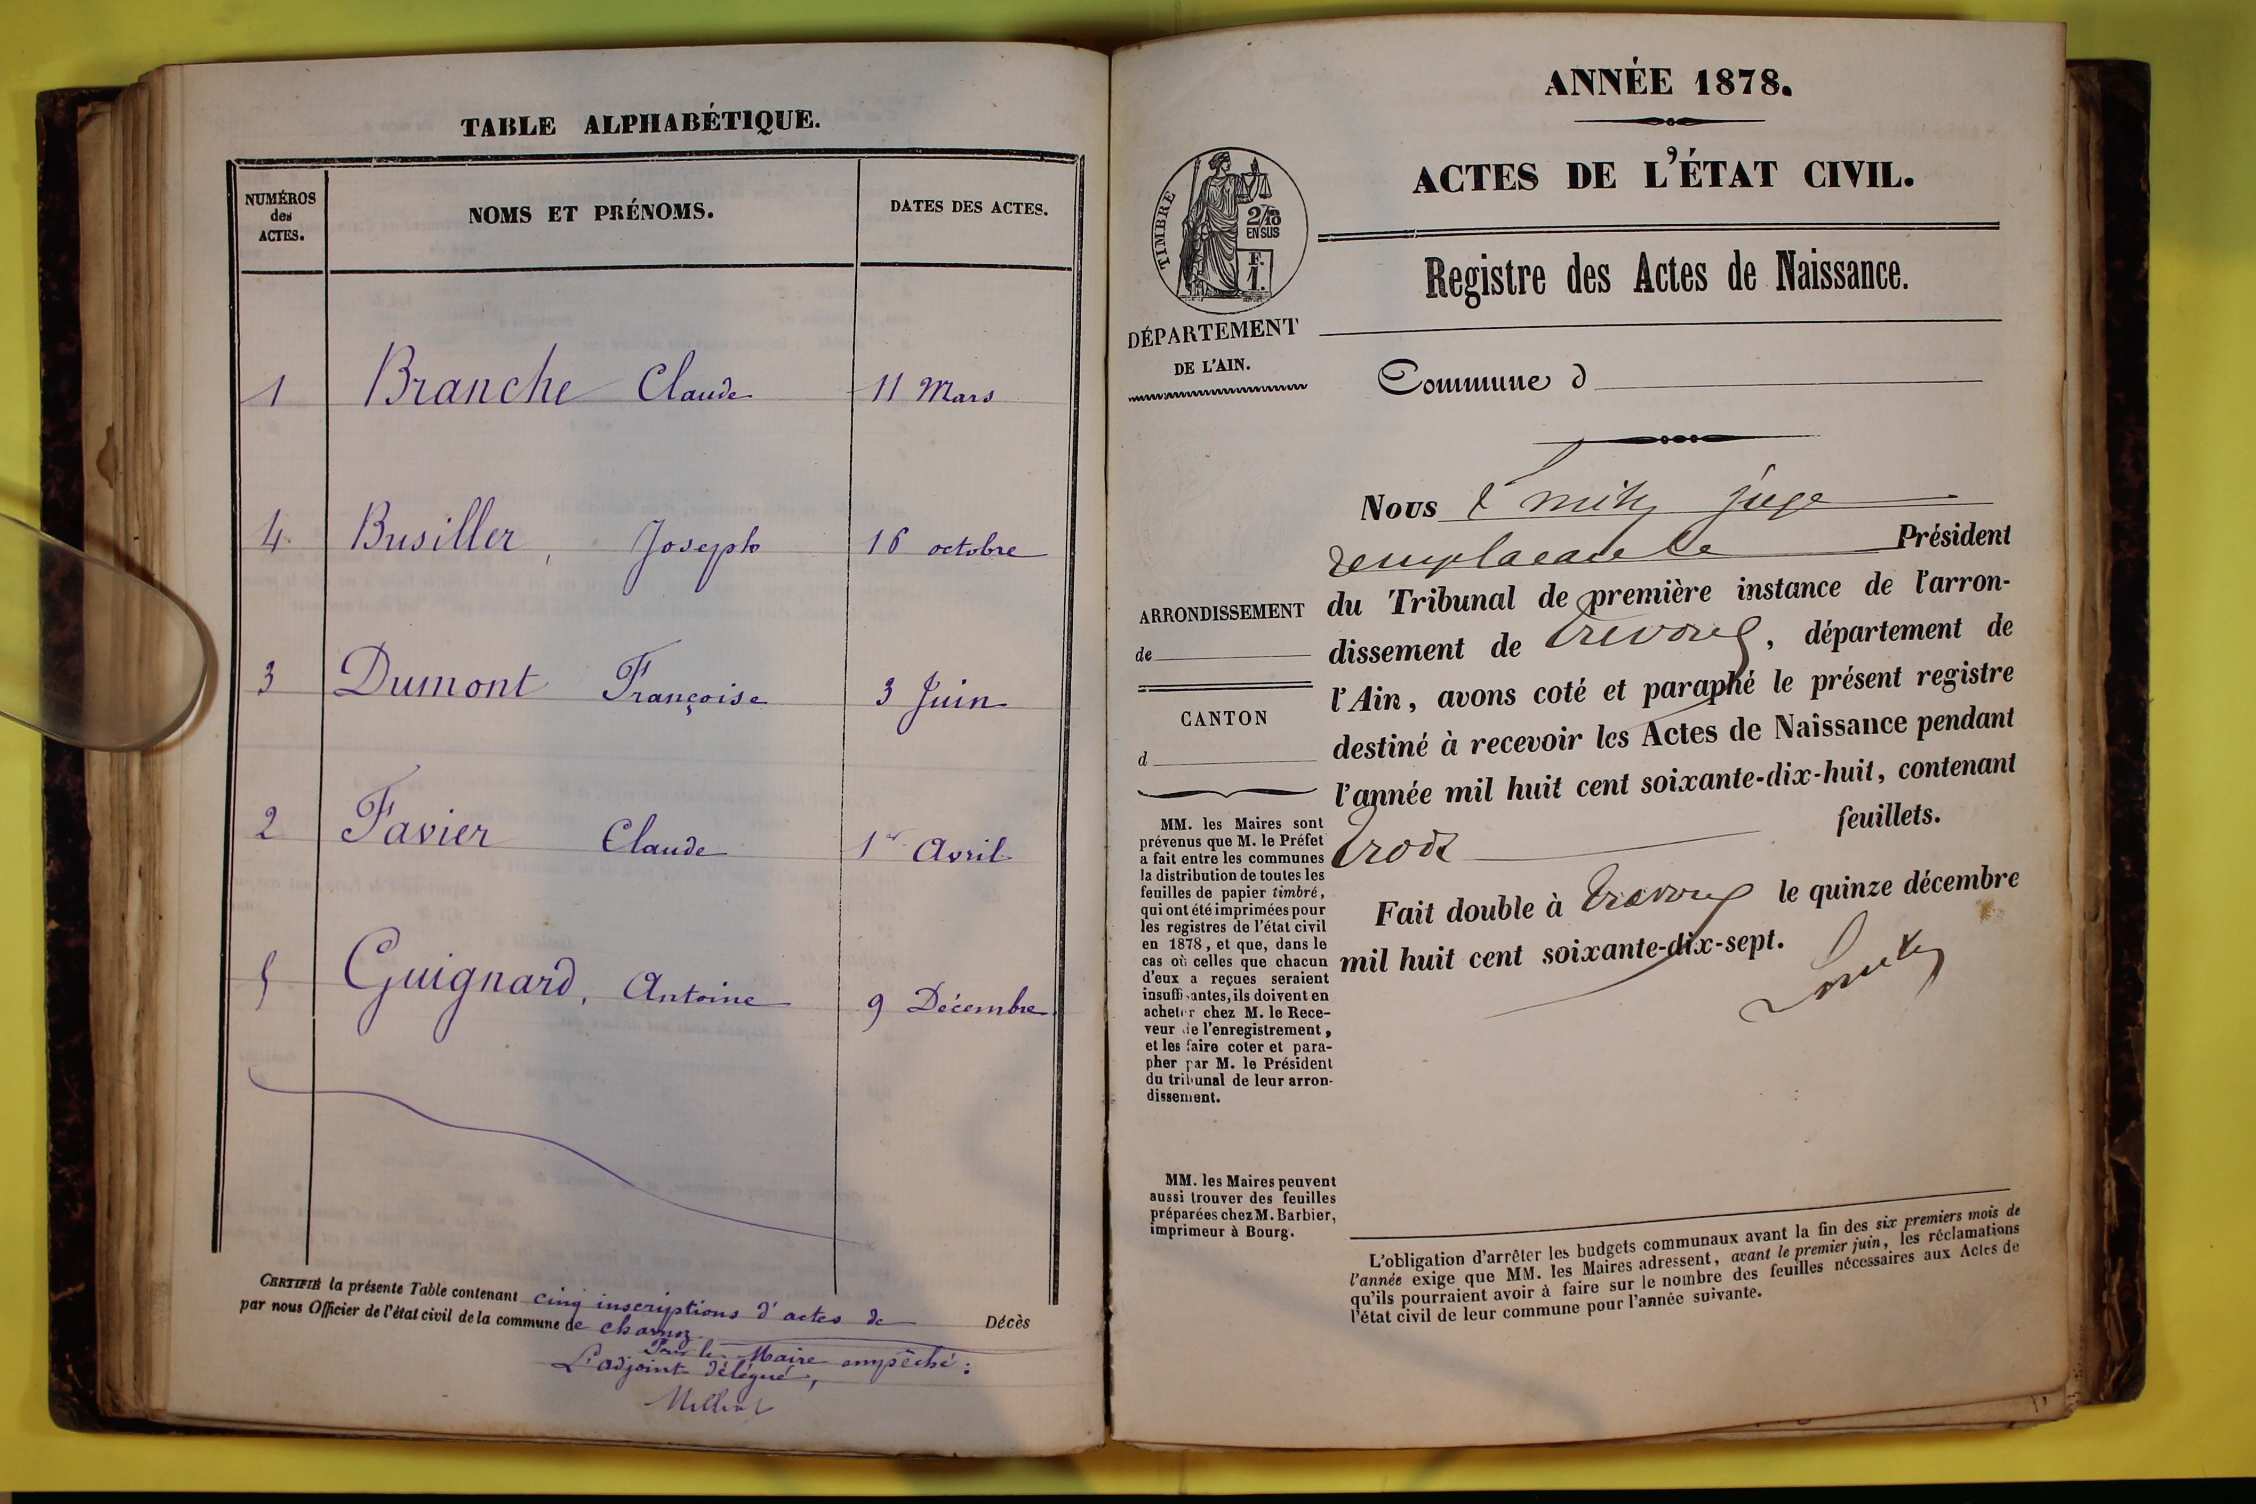 TABLE ALPHABÉTIQUE.
NUMÉROS
des
ACTES.
NOMS ET PRÉNOMS.
DATES DES ACTES.
1 Branche Claude 11 Mars
4 Busiller, Joseph 16 octobre
3 Dumont Françoise 3 Juin
2 Favier Claude 1er Avril
5 Guignard, Antoine 9 Décembre
CERTIFIÉ la présente Table contenant cinq inscriptions d'actes de Décès
par nous Officier de l'état civil de la commune de Charnoz
Pour le Maire empêché :
L'adjoint délégué,
ANNÉE 1878.
ACTES DE L'ÉTAT CIVIL.
TIMBRE
2/10
EN SUS
F.
1.
Registre des Actes de Naissance.
DÉPARTEMENT
DE L'AIN.
Commune d
Nous juge
remplaçant le Président
du Tribunal de première instance de l'arron-
dissement de Trévoux, département de
l'Ain, avons coté et paraphé le présent registre
destiné à recevoir les Actes de Naissance pendant
l'année mil huit cent soixante-dix-huit, contenant
trois feuillets.
Fait double à Trévoux le quinze décembre
mil huit cent soixante-dix-sept.
ARRONDISSEMENT
de
CANTON
d
MM. les Maires sont
prévenus que M. le Préfet
a fait entre les communes
la distribution de toutes les
feuilles de papier timbré,
qui ont été imprimées pour
les registres de l'état civil
en 1878, et que, dans le
cas où celles que chacun
d'eux a reçues seraient
insuffisantes, ils doivent en
acheter chez M. le Rece-
veur de l'enregistrement,
et les faire coter et para-
pher par M. le Président
du tribunal de leur arron-
dissement.
MM. les Maires peuvent
aussi trouver des feuilles
préparées chez M. Barbier,
imprimeur à Bourg.
L'obligation d'arrêter les budgets communaux avant la fin des six premiers mois de
l'année exige que MM. les Maires adressent, avant le premier juin, les réclamations
qu'ils pourraient avoir à faire sur le nombre des feuilles nécessaires aux Actes de
l'état civil de leur commune pour l'année suivante.